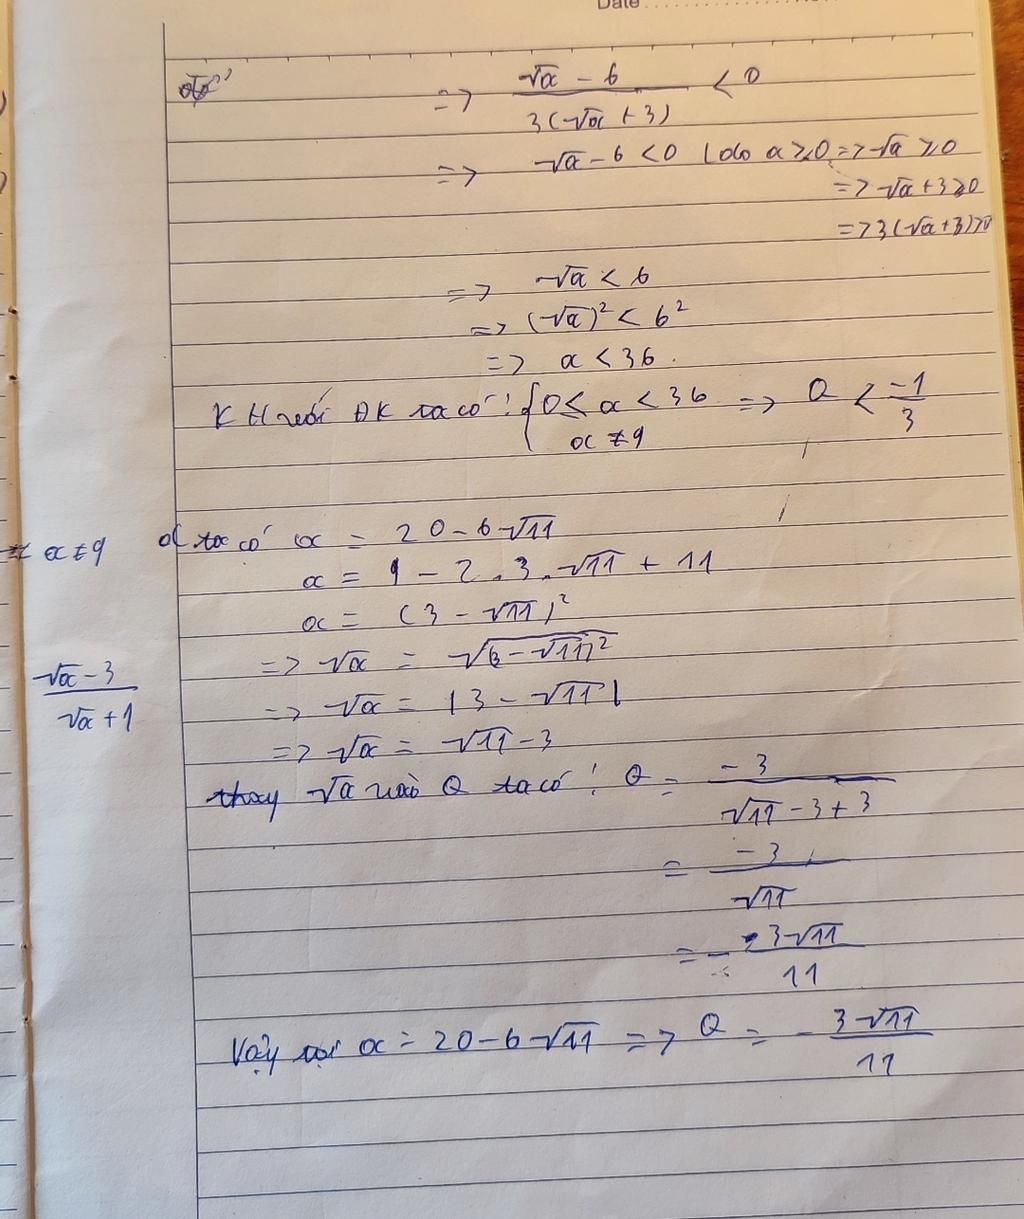 Date
=> (√x - 6)/(3(√x + 3)) < 0
=> √x - 6 < 0 (do x ≥ 0 => √x ≥ 0
=> √x + 3 ≥ 0
=> 3(√x + 3) > 0
=> √x < 6
=> (√x)² < 6²
=> x < 36.
KH với ĐK ta có: { 0 ≤ x < 36 => Q < -1/3
x ≠ 9
x ≠ 9
d ta có x = 20 - 6√11
x = 9 - 2.3.√11 + 11
x = (3 - √11)²
=> √x = √(3 - √11)²
(√x - 3)/(√x + 1)
=> √x = |3 - √11|
=> √x = √11 - 3
thay √x vào Q ta có: Q = -3/(√11 - 3 + 3)
= -3/√11
= -3√11/11
Vậy tại x = 20 - 6√11 => Q = -3√11/11